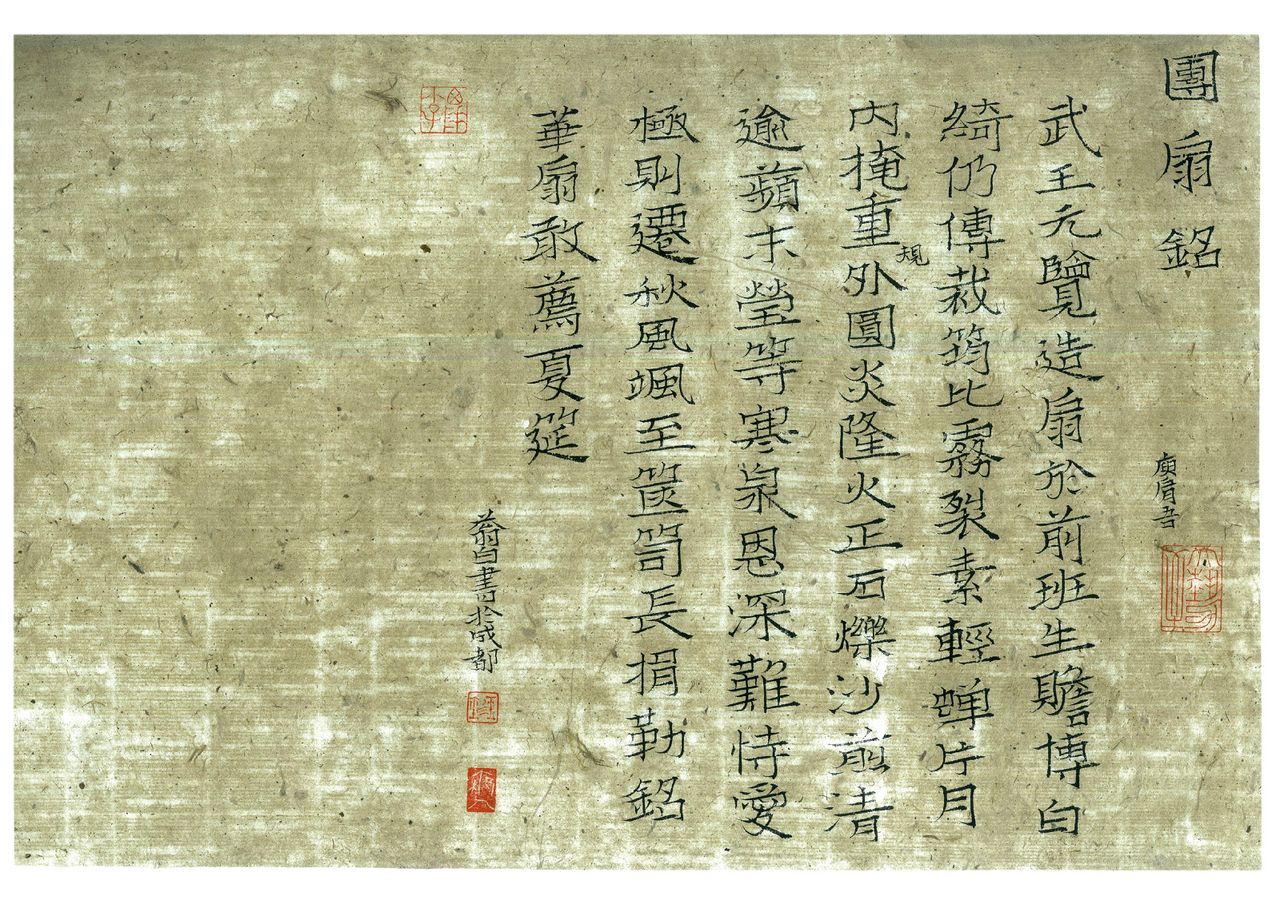 團扇銘
庾肩吾
武王元覽造扇於前班生贍博白
綺仍傳裁筠比霧裂素輕蟬片月
內掩重規外圓炎隆火正石爍沙煎清
逾蘋末瑩等寒泉恩深難恃愛
極則遷秋風颯至篋笥長捐勒銘
華扇敢薦夏筵
翁白書於成都